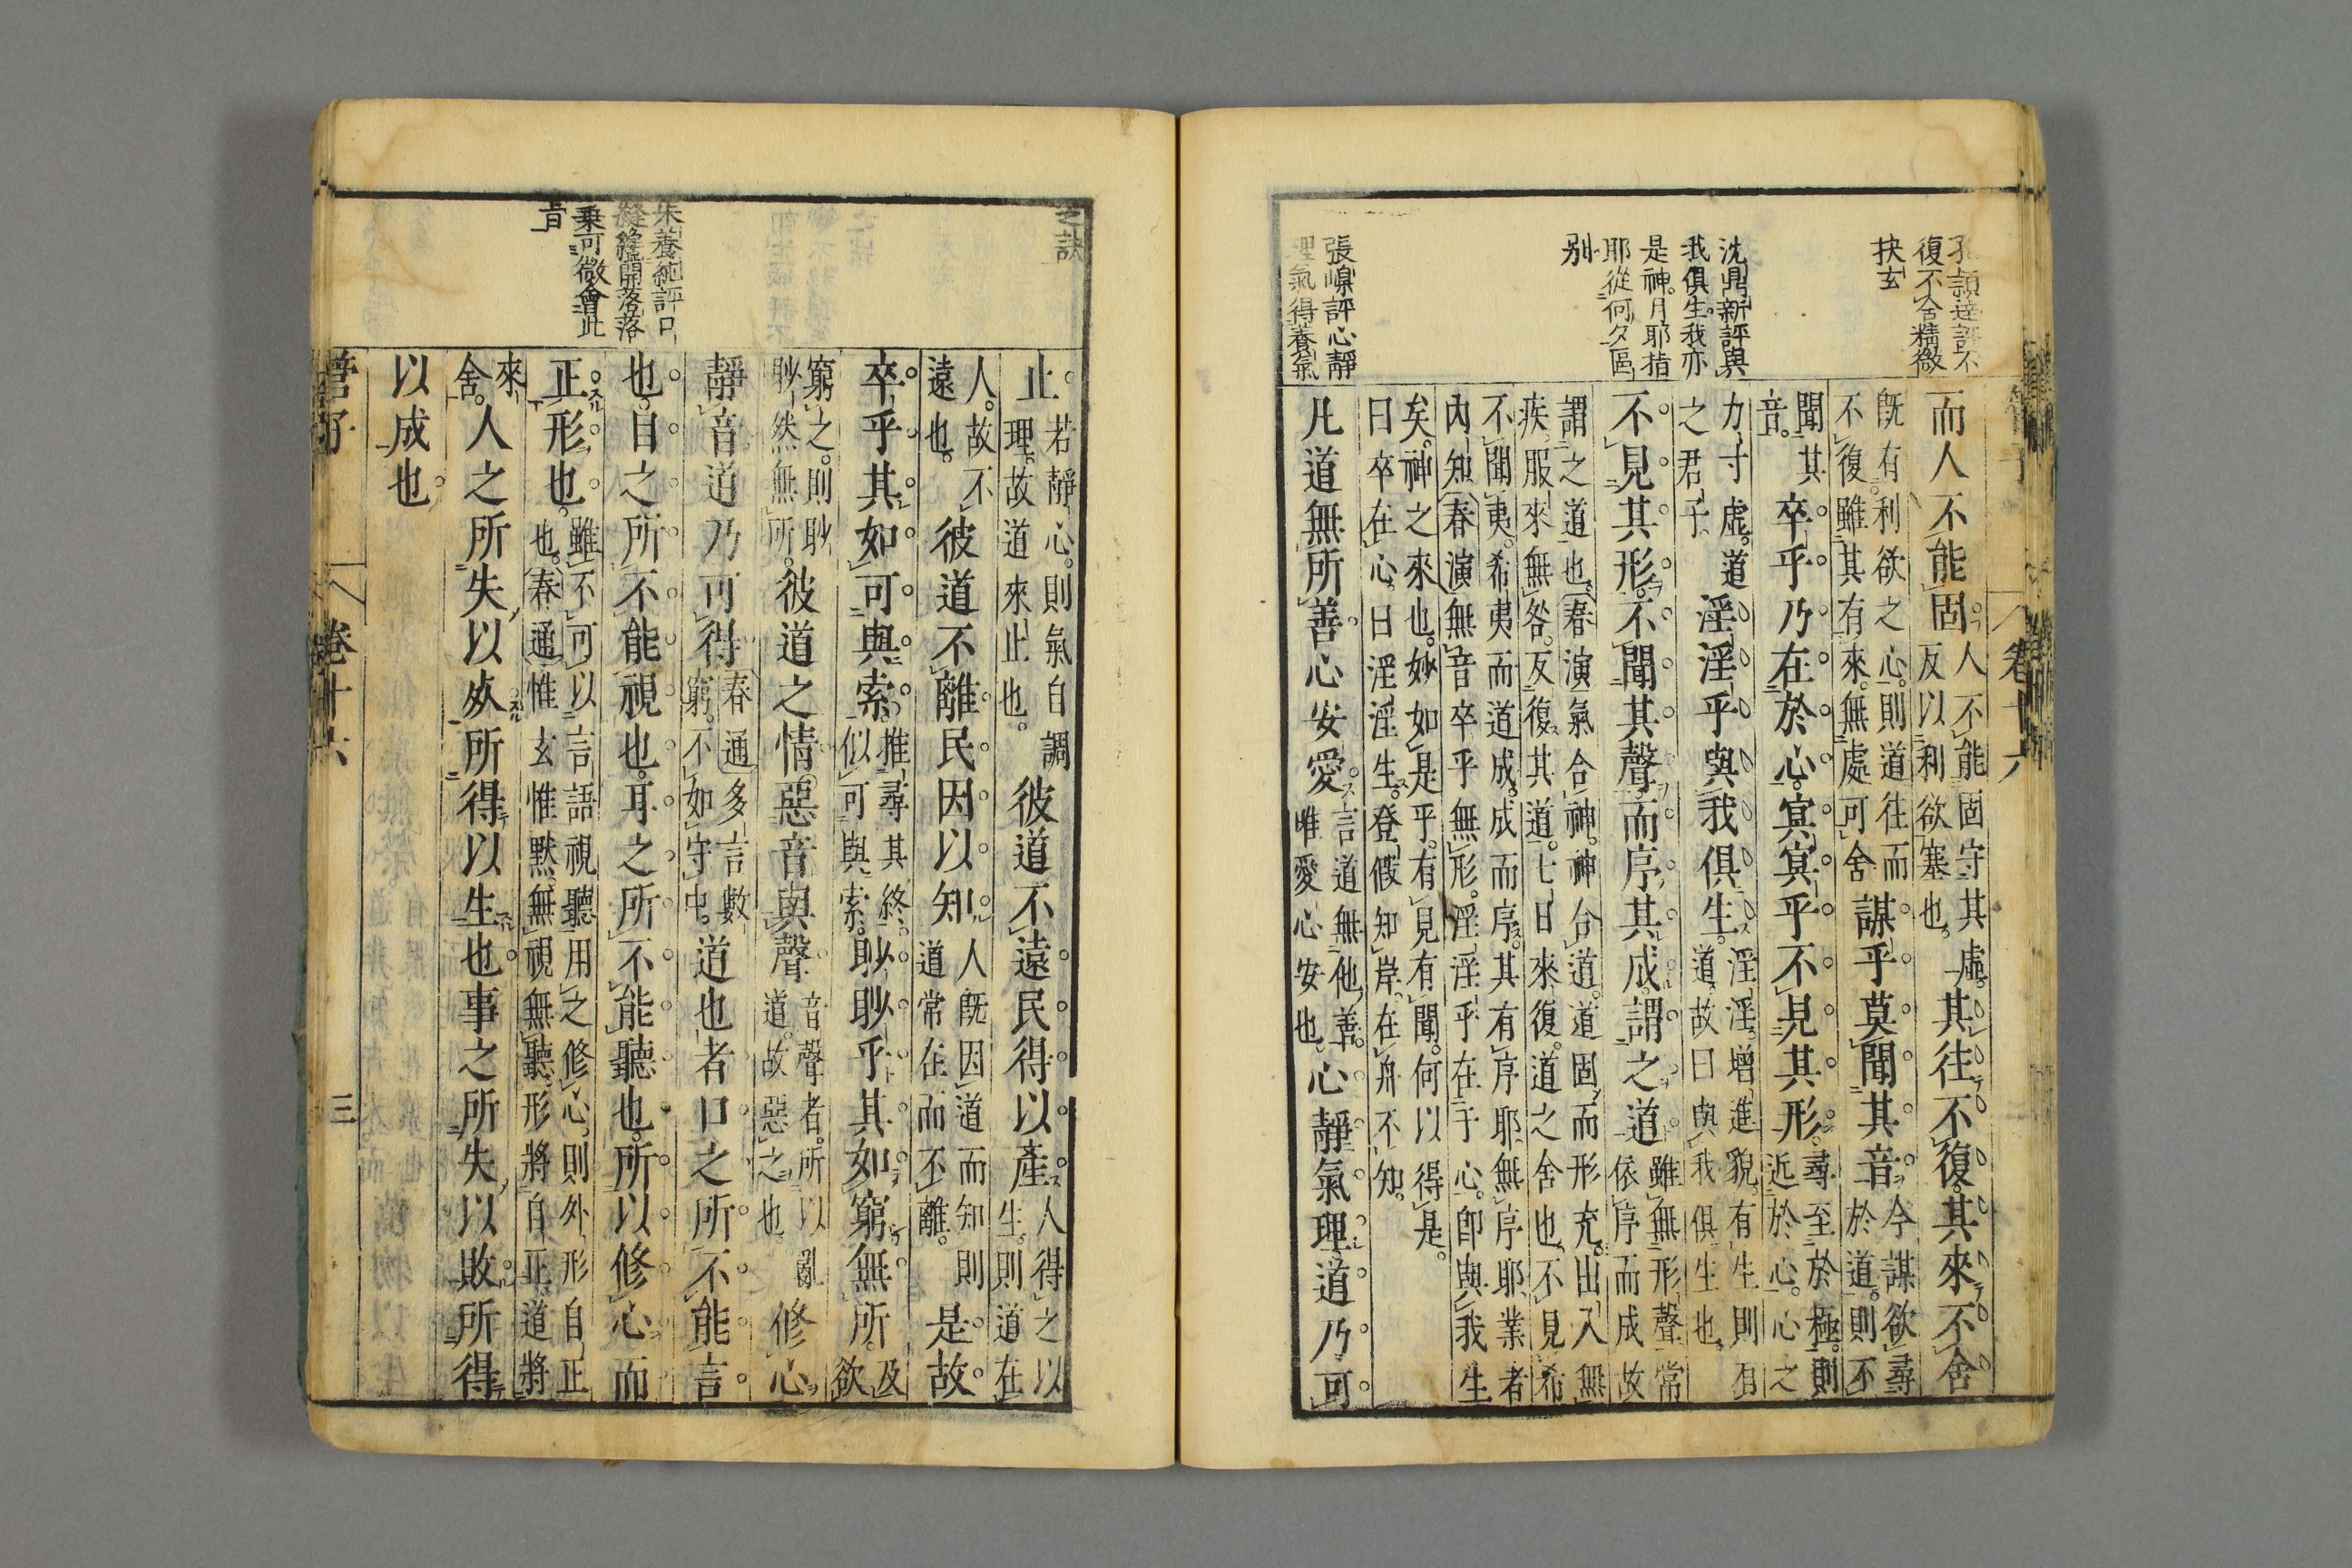 復不舍精微
抉玄
沈鼎新評與
我俱生我亦
是神月耶指
耶從何夕區
別
張嵲評心靜
理氣得養氣
卷十六
而人不能固人不能固守其虛其往不復其來不舍
反以利欲塞也
既有利欲之心則道往而謀乎莫聞其音今謀欲尋
不復雖其有來無處可舍於道則不
聞其卒乎乃在於心冥冥乎不見其形尋至於極則
音近於心心之
力寸虛道淫淫乎與我俱生淫淫增進貌有生則有
之君子道故曰與我俱生也
不見其形不聞其聲而序其成謂之道雖無形聲常
依序而成故
謂之道也春演氣合神神合道道固而形充出入無
疾服來無咎反復其道七日來復道之舍也不見希
不聞夷希夷而道成成而序其有序耶無序耶業者
內知春演無音卒乎無形淫淫乎在于心即與我生
矣神之來也妙如是乎有見有聞何以得是
曰卒在心曰淫淫生登假知岸在舟不知
凡道無所善心安愛言道無他善心靜氣理道乃可
唯愛心安也
之訣
朱養純評口
縫開落落
乘可微會此
旨
止若靜心則氣自調彼道不遠民得以產人得之以
理故道來止也生則道在
人故不彼道不離民因以知人既因道而知則是故
遠也道常在而不離
卒乎其如可與索推尋其終眇眇乎其如窮無所及
似可與索欲
窮之則眇彼道之情惡音與聲音聲者所以亂修心
眇然無所道故惡之也
靜音道乃可得春通多言數道也者口之所不能言
窮不如守中
也目之所不能視也耳之所不能聽也所以修心而
正形也雖不可以言語視聽用之修心則外形自正
也春通惟玄惟默無視無聽形將自正道將
來人之所失以死所得以生也事之所失以敗所得
舍
以成也
管子 卷十六 三